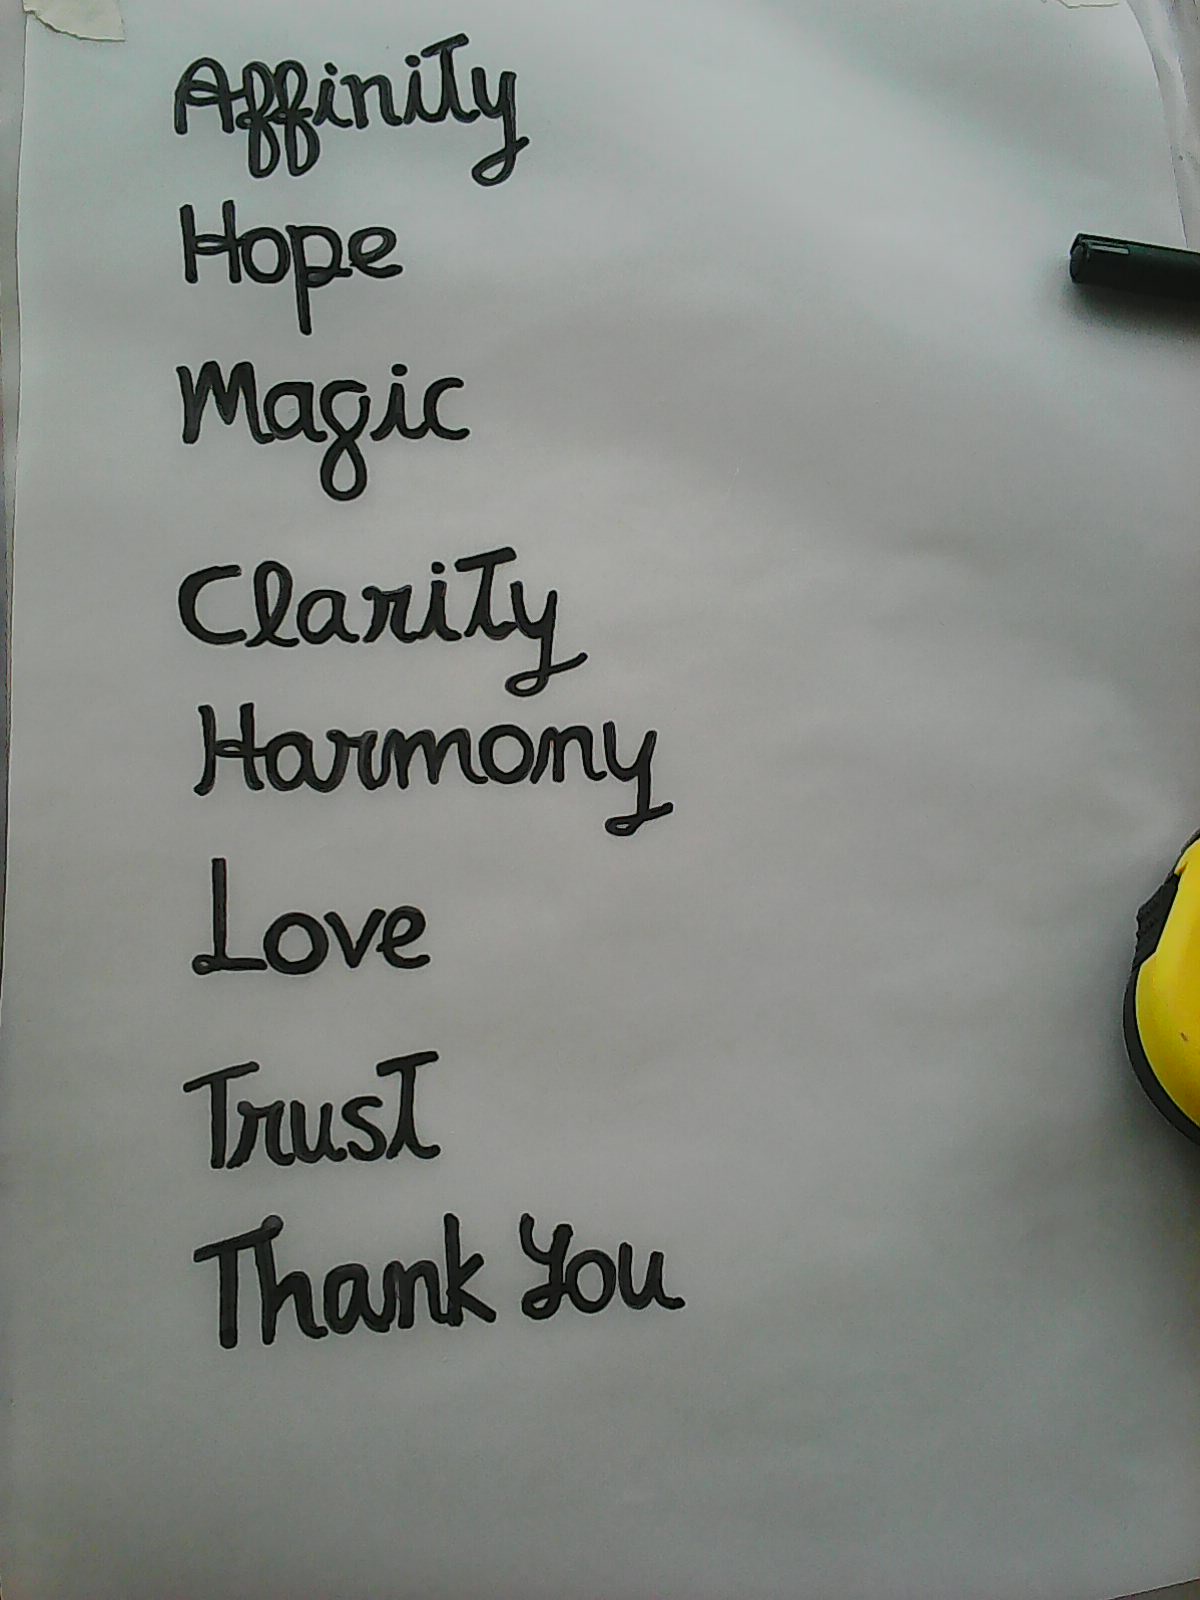 Affinity
Hope
Magic
Clarity
Harmony
Love
Trust
Thank You